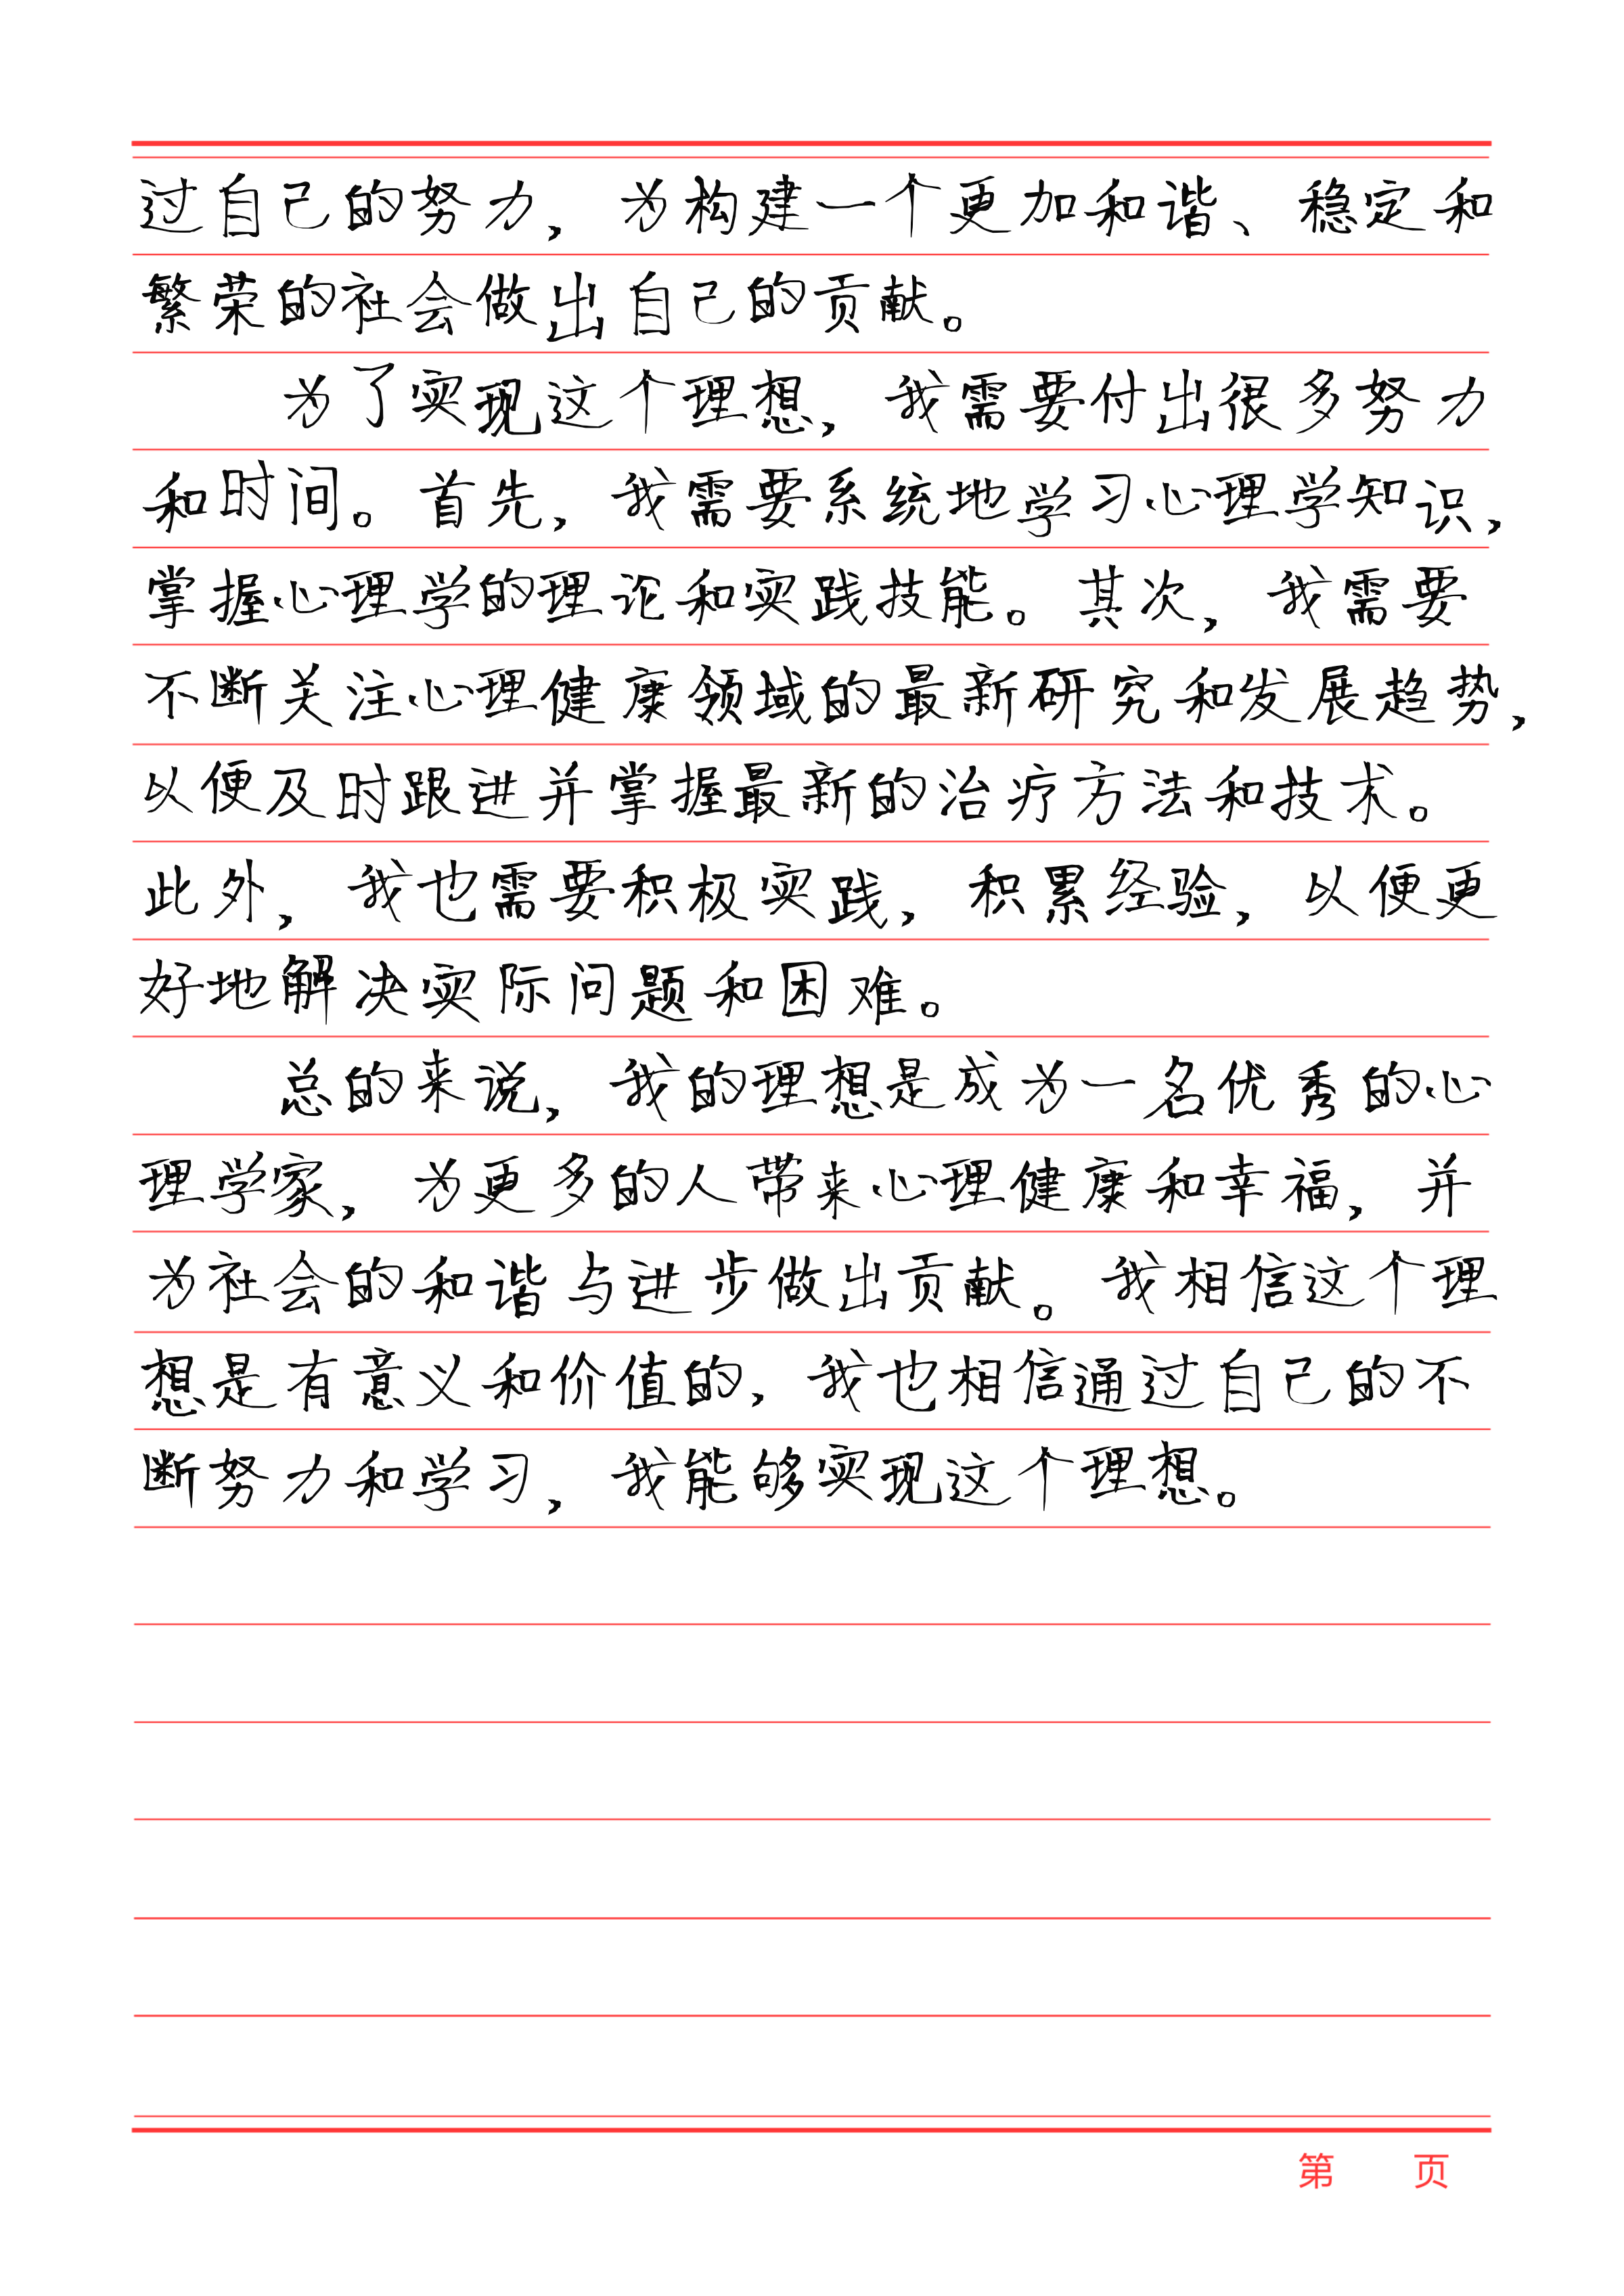 过自己的努力，为构建一个更加和谐、稳定和
繁荣的社会做出自己的贡献。
为了实现这个理想，我需要付出很多努力
和时间。首先，我需要系统地学习心理学知识，
掌握心理学的理论和实践技能。其次，我需要
不断关注心理健康领域的最新研究和发展趋势，
以便及时跟进并掌握最新的治疗方法和技术。
此外，我也需要积极实践，积累经验，以便更
好地解决实际问题和困难。
总的来说，我的理想是成为一名优秀的心
理学家，为更多的人带来心理健康和幸福，并
为社会的和谐与进步做出贡献。我相信这个理
想是有意义和价值的，我也相信通过自己的不
断努力和学习，我能够实现这个理想。
第 页